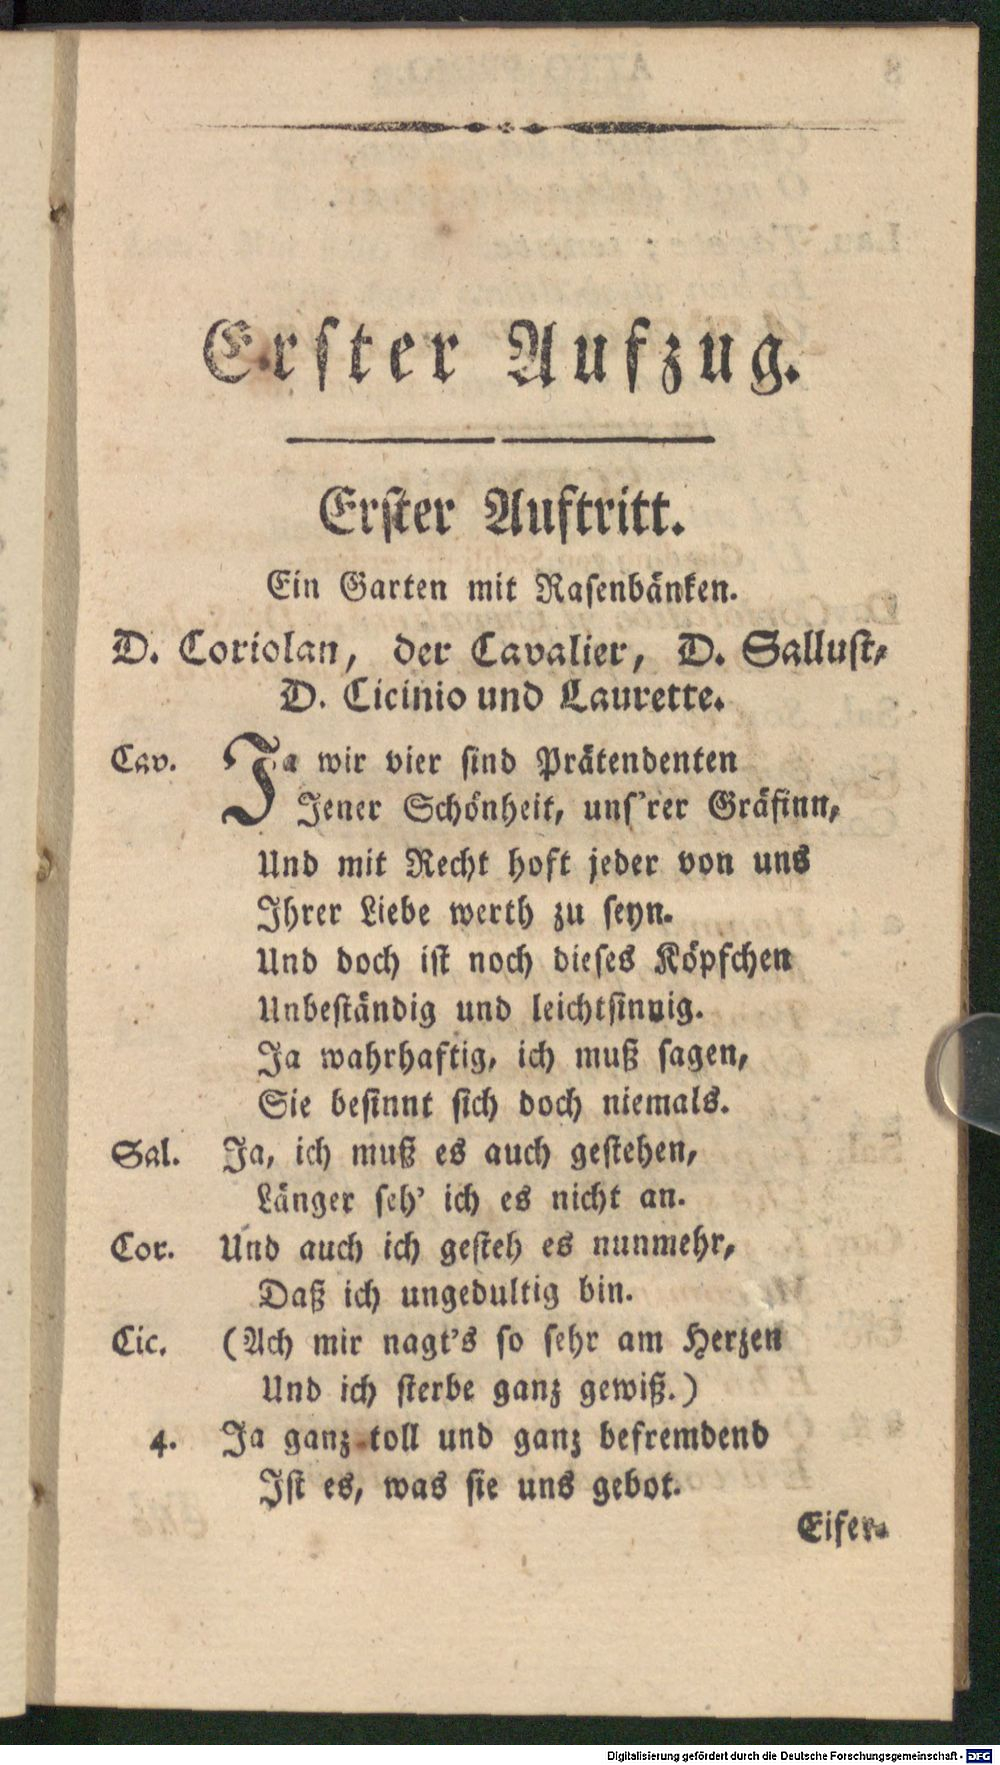 Erster Aufzug.
Erster Auftritt.
Ein Garten mit Rasenbänken.
D. Coriolan, der Cavalier, D. Sallust,
D. Cicinio und Laurette.
Cav. Ja wir vier sind Prätendenten
Jener Schönheit, uns'rer Gräfinn,
Und mit Recht hoft jeder von uns
Ihrer Liebe werth zu seyn.
Und doch ist noch dieses Köpfchen
Unbeständig und leichtsinnig.
Ja wahrhaftig, ich muß sagen,
Sie besinnt sich doch niemals.
Sal. Ja, ich muß es auch gestehen,
Länger seh' ich es nicht an.
Cor. Und auch ich gesteh es nunmehr,
Daß ich ungedultig bin.
Cic. (Ach mir nagt's so sehr am Herzen
Und ich sterbe ganz gewiß.)
4. Ja ganz toll und ganz befremdend
Ist es, was sie uns gebot.
Eifer-
Digitalisierung gefördert durch die Deutsche Forschungsgemeinschaft - DFG